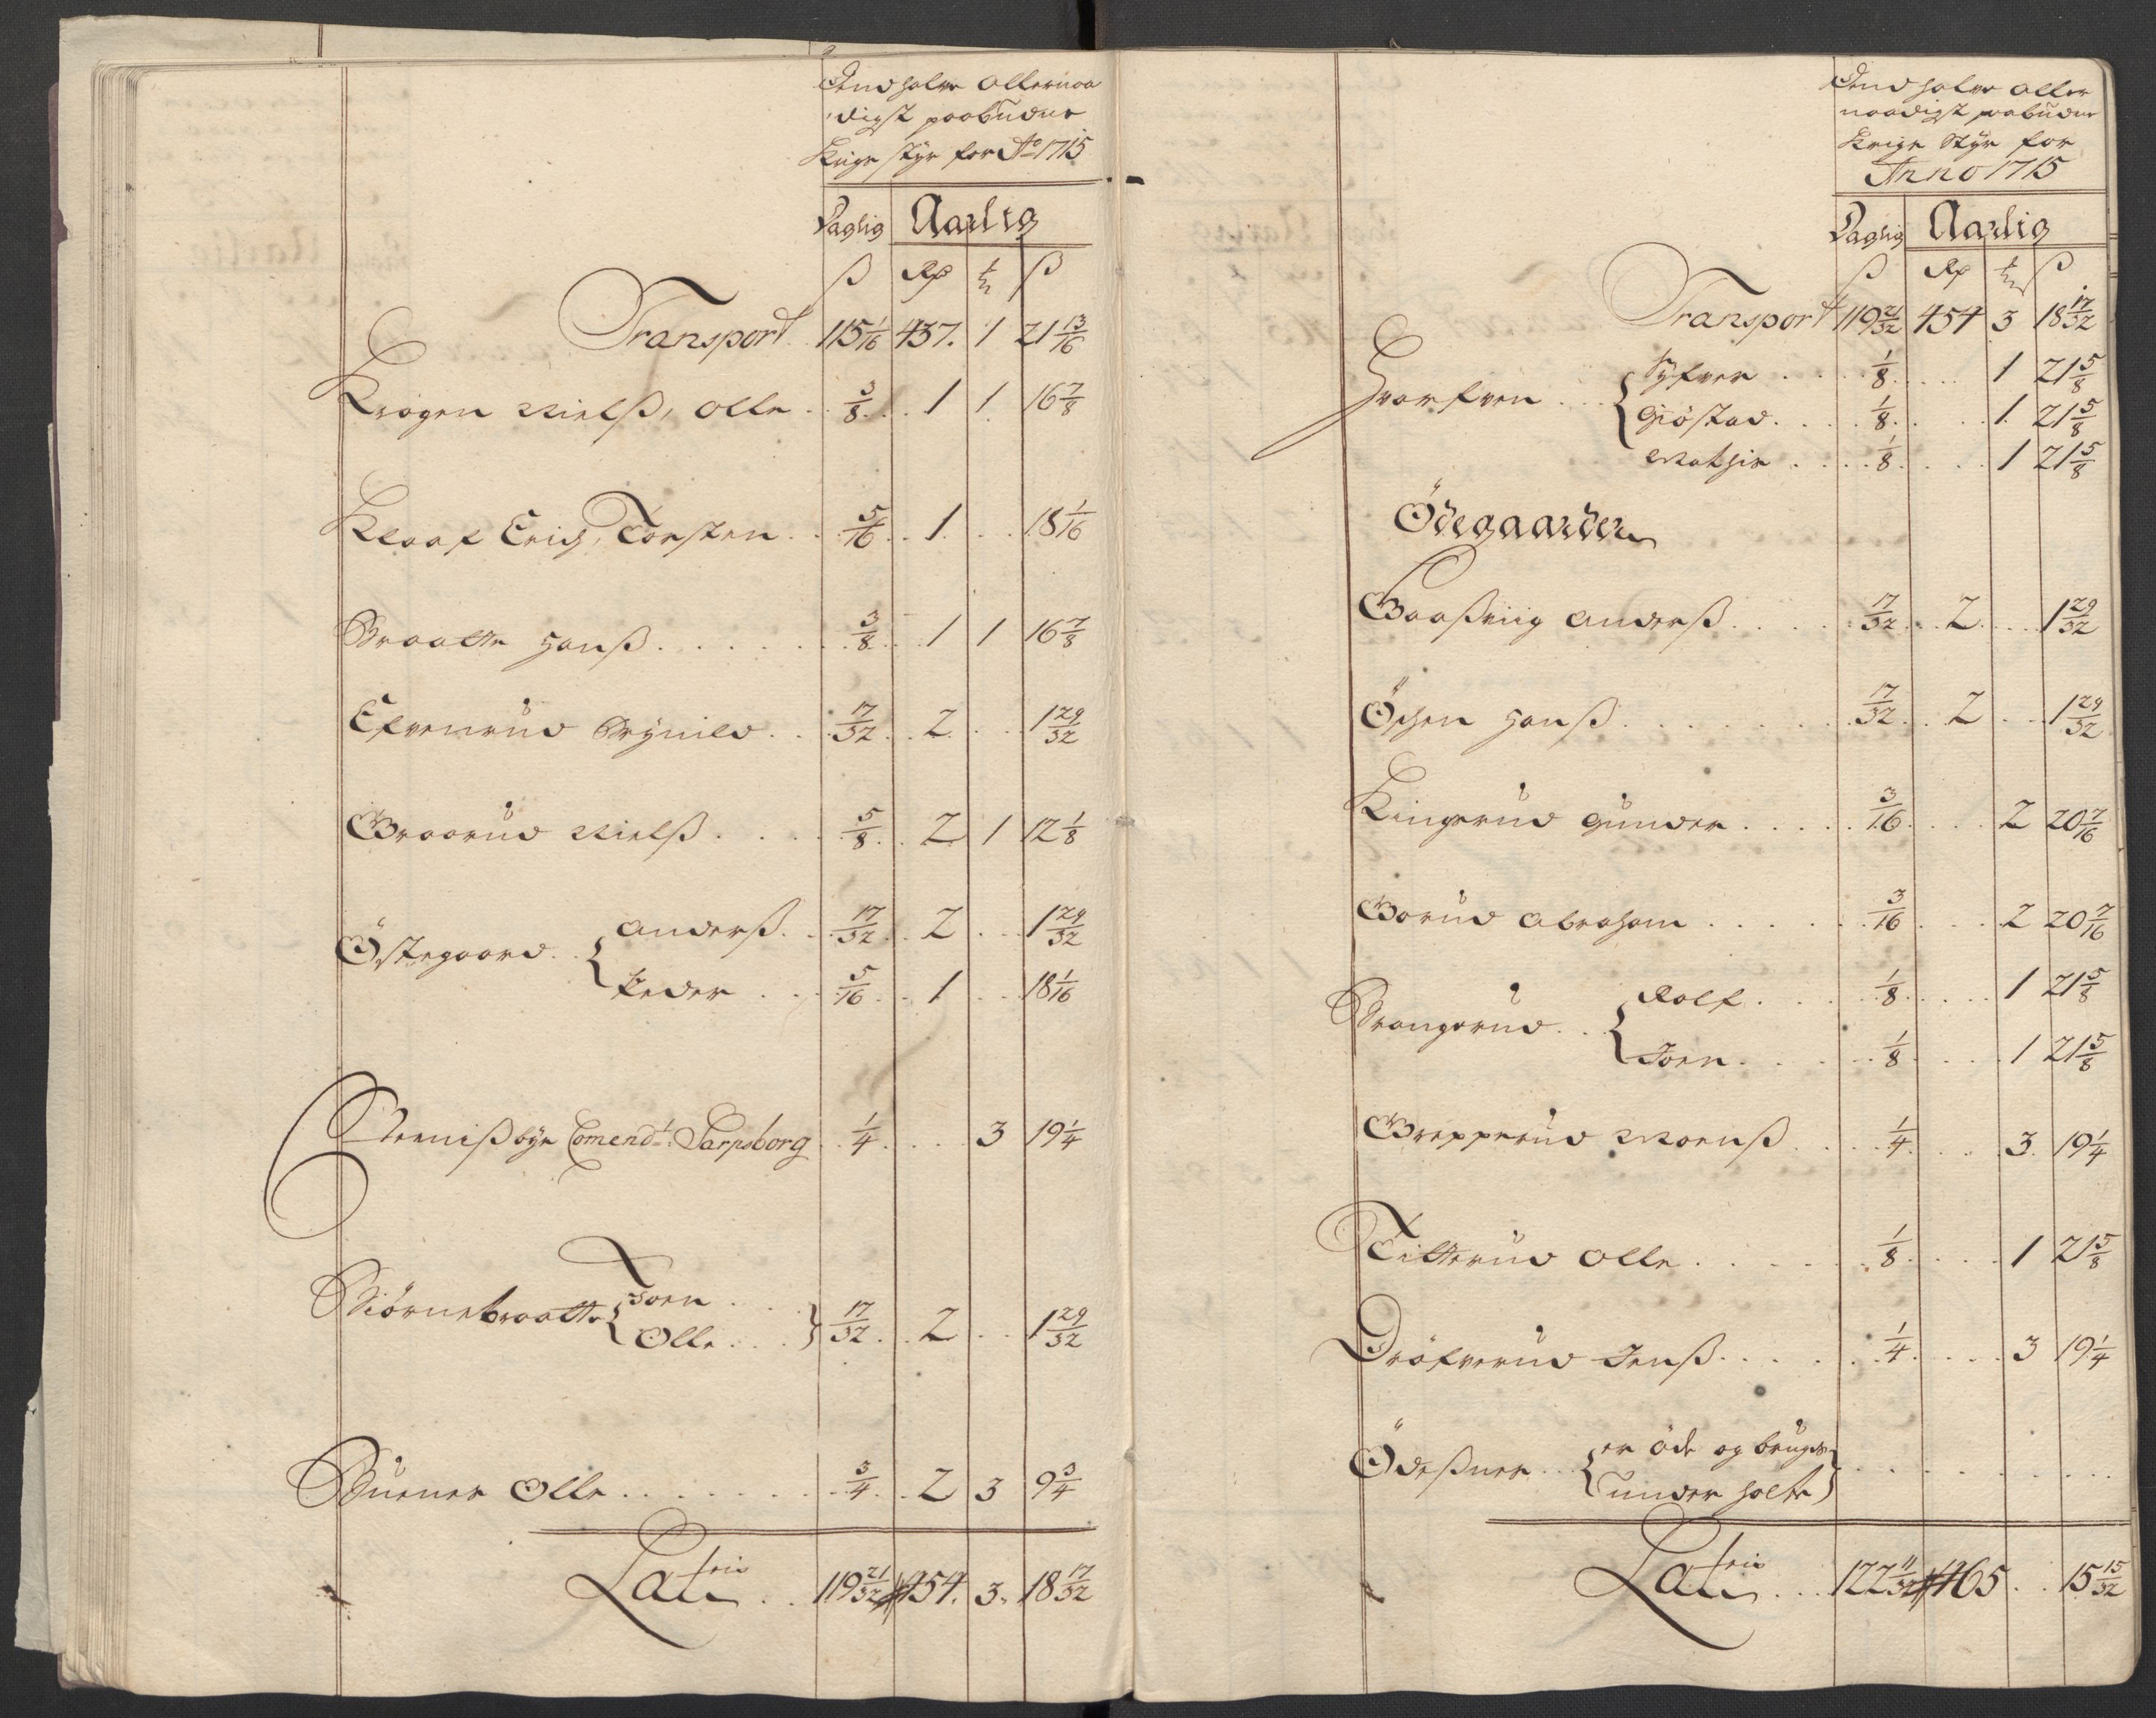 End halve Allernaa
digst paabudne
Krigs styr for Ao 1715
Daglig Aarlig
ß Rdr ß
Transport 115 1/16 437. 1 21 13/16
Krogen Nielß, Olle 3/8 1 1 16 7/8
Kloof Erich, Torsten 5/16 1 18 1/16
Braatte Hanß 3/8 1 1 16 7/8
Efvenrud Brynild 17/32 2 1 29/32
Graarud Nielß 5/8 2 1 12 1/8
Östegaard { Anderß 17/32 2 1 29/32
Peder 5/16 1 18 1/16
Comendt: Sarpsborg 1/4 3 19 1/4
Biörnebraatte { Joen
Olle } 17/32 2 1 29/32
Buener Olle 3/4 2 3 9 3/4
Lateris 119 21/32 454. 3. 18 17/32
End halve Aller
naadigst paabudne
Krigs Styr for
Anno 1715
Daglig Aarlig
ß Rdr ß
Transport 119 21/32 454 3 18 17/32
Syfver 1/8 1 21 5/8
Hvarfven { Giöstad 1/8 1 21 5/8
Mathis 1/8 1 21 5/8
Ödegaarder
Gaaßviig Anderß 17/32 2 1 29/32
Öyen Hanß 17/32 2 1 29/32
Kingerud Gunder 3/16 2 20 7/16
Gorud Abraham 3/16 2 20 7/16
Brangerud { Rolf 1/8 1 21 5/8
Joen 1/8 1 21 5/8
Grepperud Moenß 1/4 3 19 1/4
Titterud Olle 1/8 1 21 5/8
Dröfverud Jenß 1/4 3 19 1/4
Ödeßner { er öde og bruges
under Holte }
Lateris 122 11/32 465 15 15/32